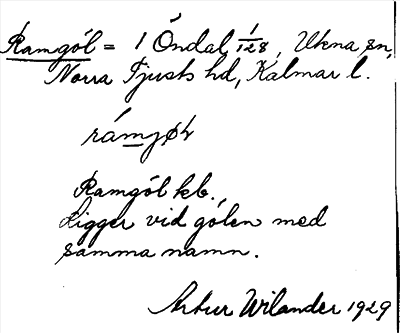 Ramgöl = 1 Öndal 1/128, Ukna sn,
Norra Tjusts hd, Kalmar l.
Ramgöl kb.
Ligger vid gölen med
samma namn.
Artur Wilander 1929